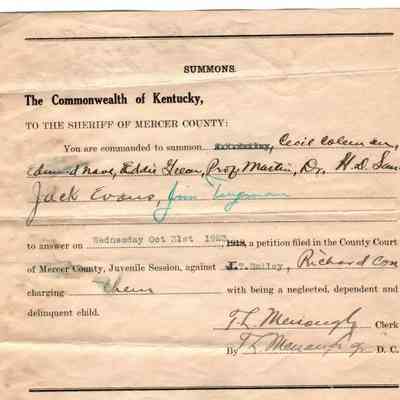 SUMMONS.
The Commonwealth of Kentucky,
TO THE SHERIFF OF MERCER COUNTY:
You are commanded to summon Cecil Coleman,
Edmund Nave, Eddie Green, Prof Martin, Dr. H. D.
Jack Evans, Jim
to answer on Wednesday Oct 31st 1923, 1918, a petition filed in the County Court
of Mercer County, Juvenile Session, against J.T. Bailey, Richard Con
charging them with being a neglected, dependent and
delinquent child.
Clerk
By D. C.